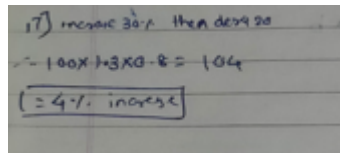 17] increase 30% then decr 20
∴ 100 × 1.3 × 0.8 = 104
(= 4% increse